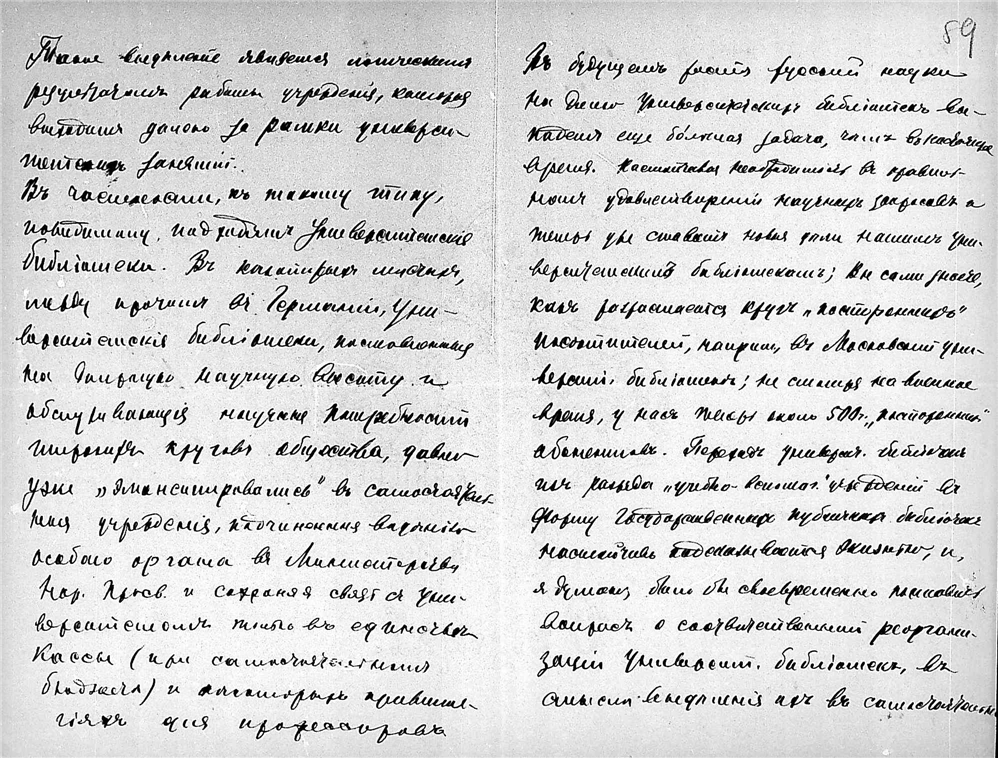 Такое выделение является логическим
результатом работы учреждения, которая
выходит далеко за рамки универси-
тетских занятий.
Въ частности, къ такому типу,
повидимому, подходятъ Университетскія
библіотеки. Въ некоторыхъ местахъ,
между прочимъ въ Германіи, Уни-
верситетскія библіотеки, поставленныя
на большую научную высоту и
обслуживающія научныя потребности
широкихъ круговъ общества, давно
уже „эмансипировались" въ самостоятель-
ныя учрежденія, подчиненныя веденію
особаго органа въ Министерстве
Нар. Просв. и сохраняя связь съ Уни-
верситетомъ только въ единстве
Кассы (при самостоятельномъ
бюджете) и некоторыхъ привиле-
гіяхъ для профессоровъ
59
Въ будущемъ роста русской науки
на долю Университетскихъ библіотекъ вы-
падетъ еще большая задача, чемъ въ настоящее
время. Настоятельная необходимость въ правиль-
номъ удовлетвореніи научныхъ запросовъ и
теперь уже ставитъ новыя цели нашимъ Уни-
верситетскимъ библіотекамъ; Вы сами знаете,
какъ разрастается кругъ „постороннихъ"
посетителей, наприм., въ Московской Уни-
версит. библіотеке; не смотря на военное
время, у насъ теперь около 500 „постороннихъ"
абонентовъ. Переходъ университ. библіотекъ
изъ разряда „учебно-вспомог." учрежденій въ
форму Государственныхъ публичныхъ библіотекъ
настойчиво подсказывается жизнью, и,
я думаю, было бы своевременно поставить
вопросъ о соответственной реоргани-
заціи Университ. библіотекъ, въ
смысле выделенія ихъ въ самостоятельн.